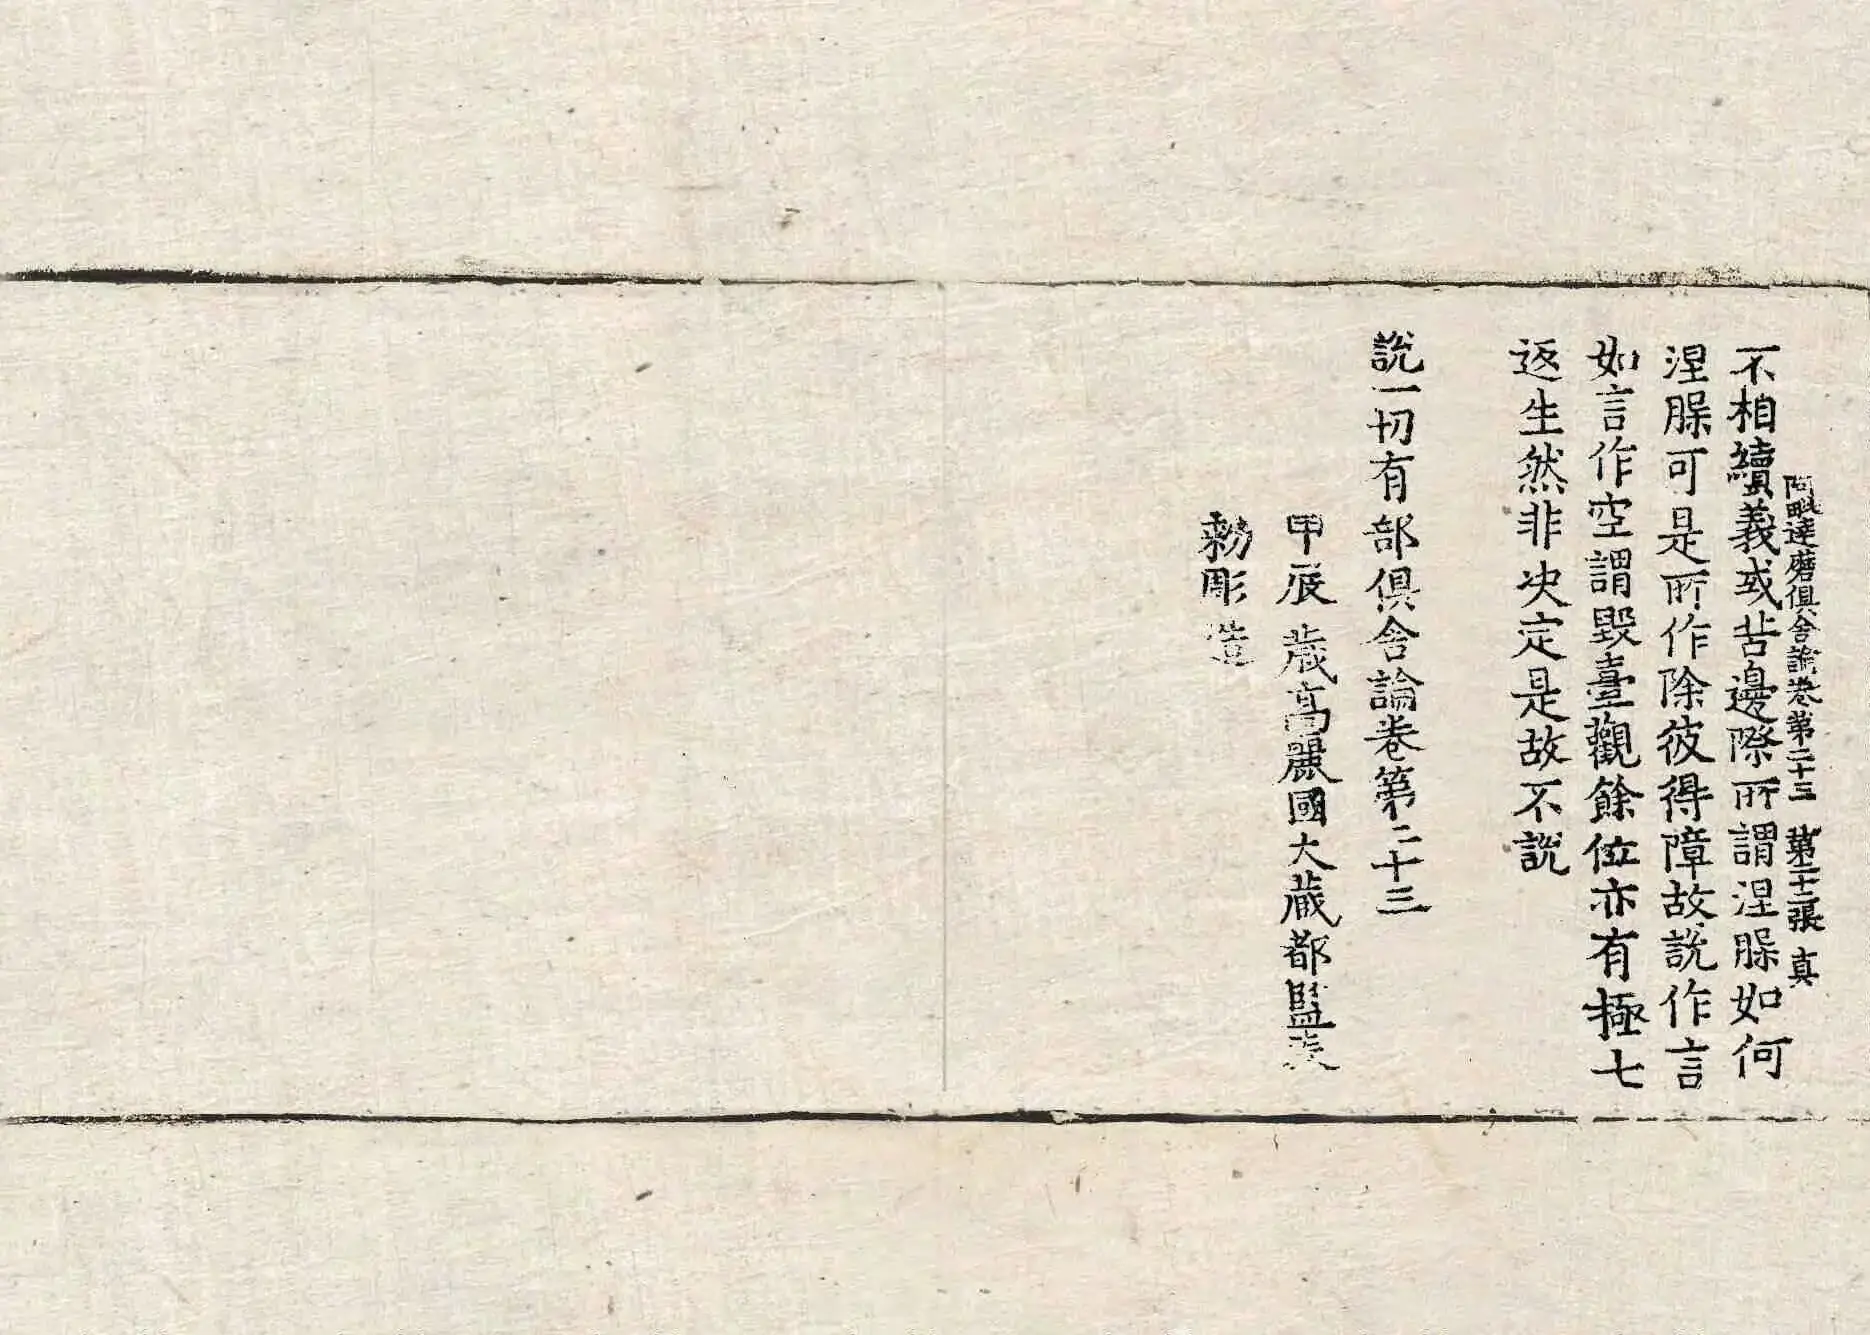 阿毗達磨俱舍論卷第二十三 第二十二張 真
不相續義或苦邊際所謂涅槃如何
涅槃可是所作除彼得障故說作言
如言作空謂毀臺觀餘位亦有極七
返生然非決定是故不說
說一切有部俱舍論卷第二十三
甲辰歲高麗國大藏都監奉
勑彫造